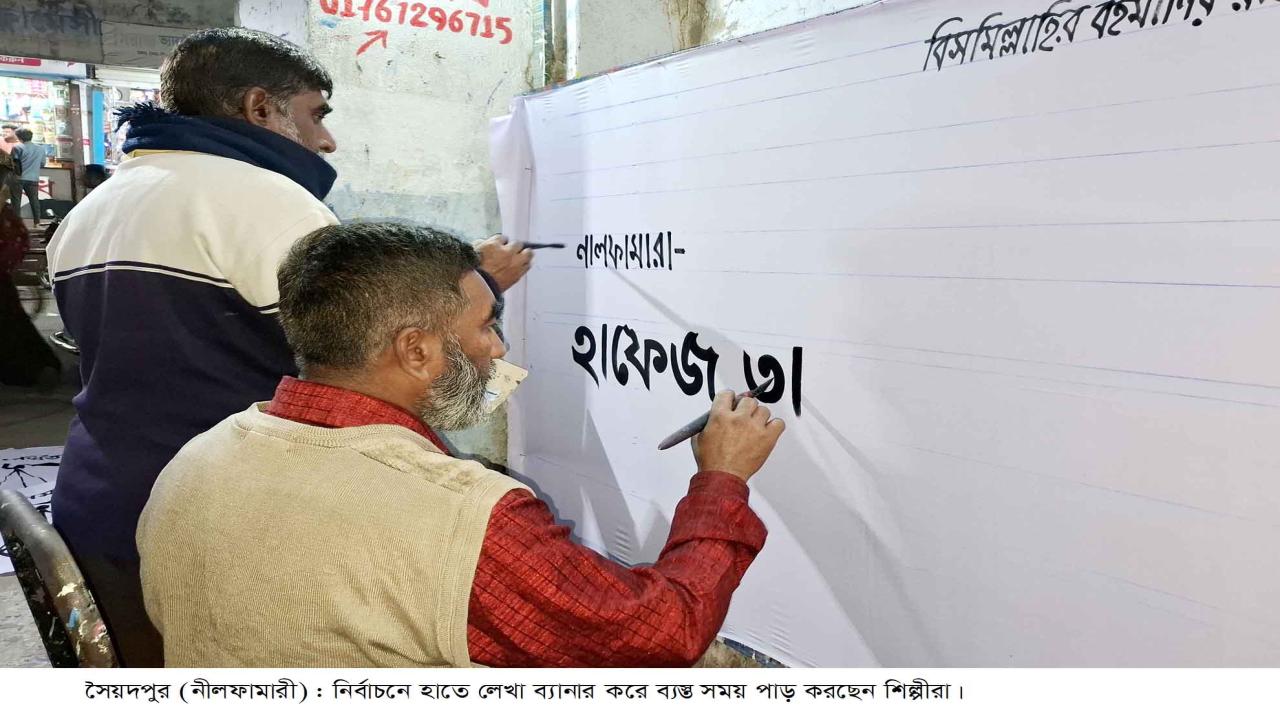 01761296715
বিসমিল্লাহির রহমানির
নীলফামারী-
হাফেজ তা
সৈয়দপুর (নীলফামারী) : নির্বাচনে হাতে লেখা ব্যানার করে ব্যস্ত সময় পাড় করছেন শিল্পীরা।